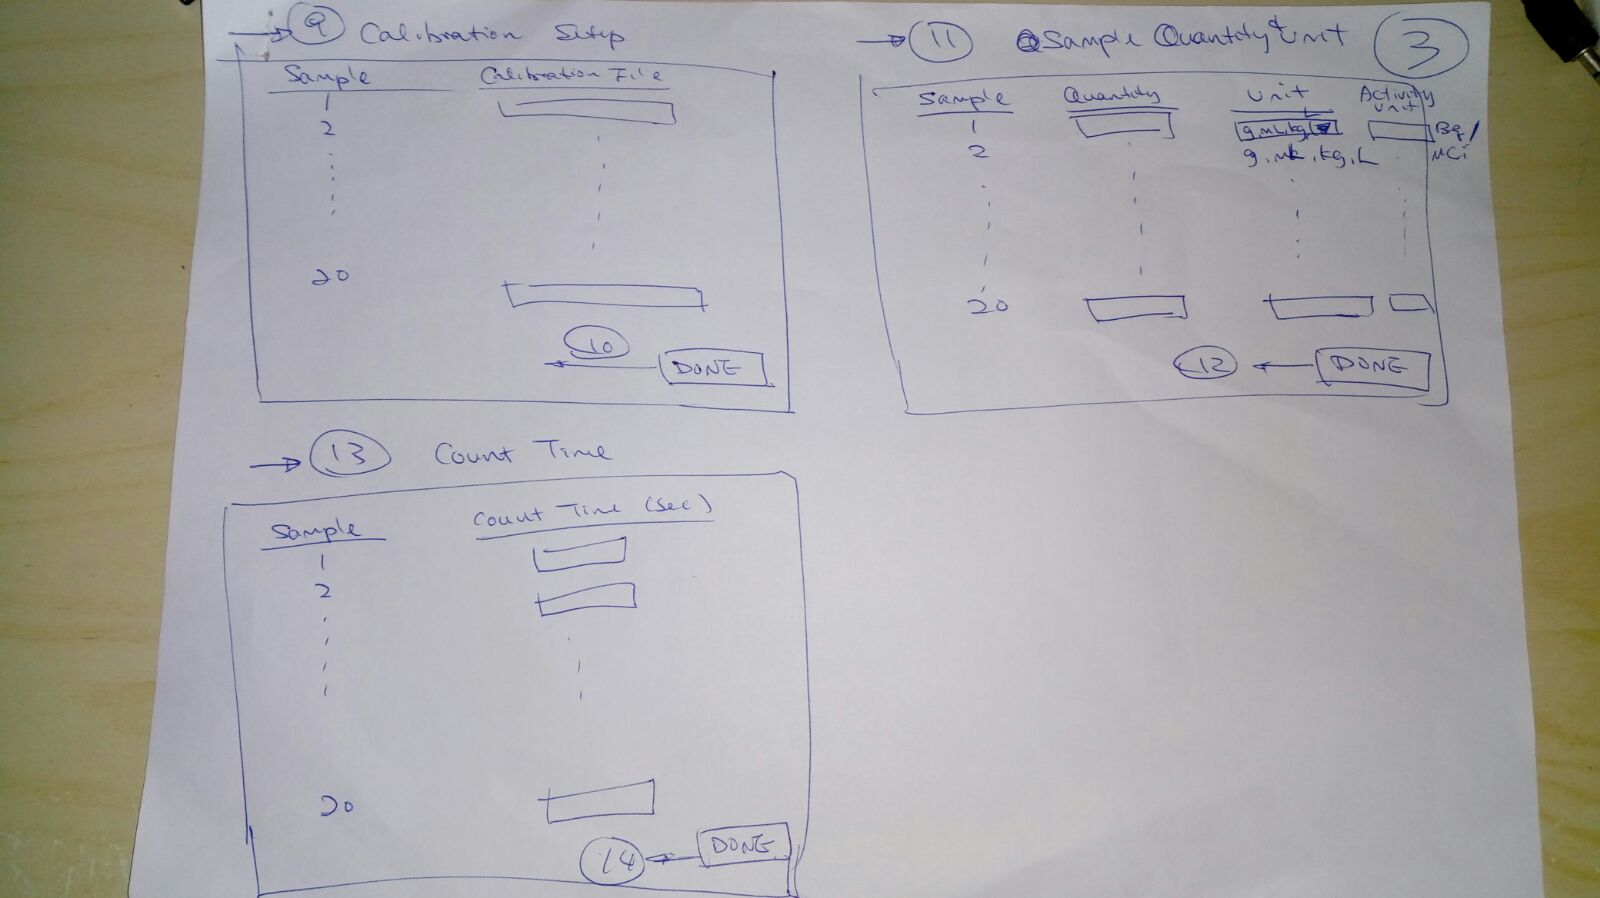 9 Calibration Setup
Sample Calibration File
1
2
20
10
DONE
11 Sample Quantity & Unit
3
Sample Quantity Unit Activity Unit
1 g, mL, kg, L Bq/
2 g, mL, kg, L μCi
20
12 DONE
13 Count Time
Sample Count Time (Sec)
1
2
20
DONE
14